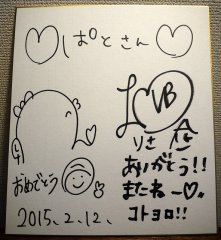 ♡ぱとさん♡
L♡VB
りさ
ありがとう!!
おめでとう
またねー♡。
コトヨロ!!
2015.2.12.